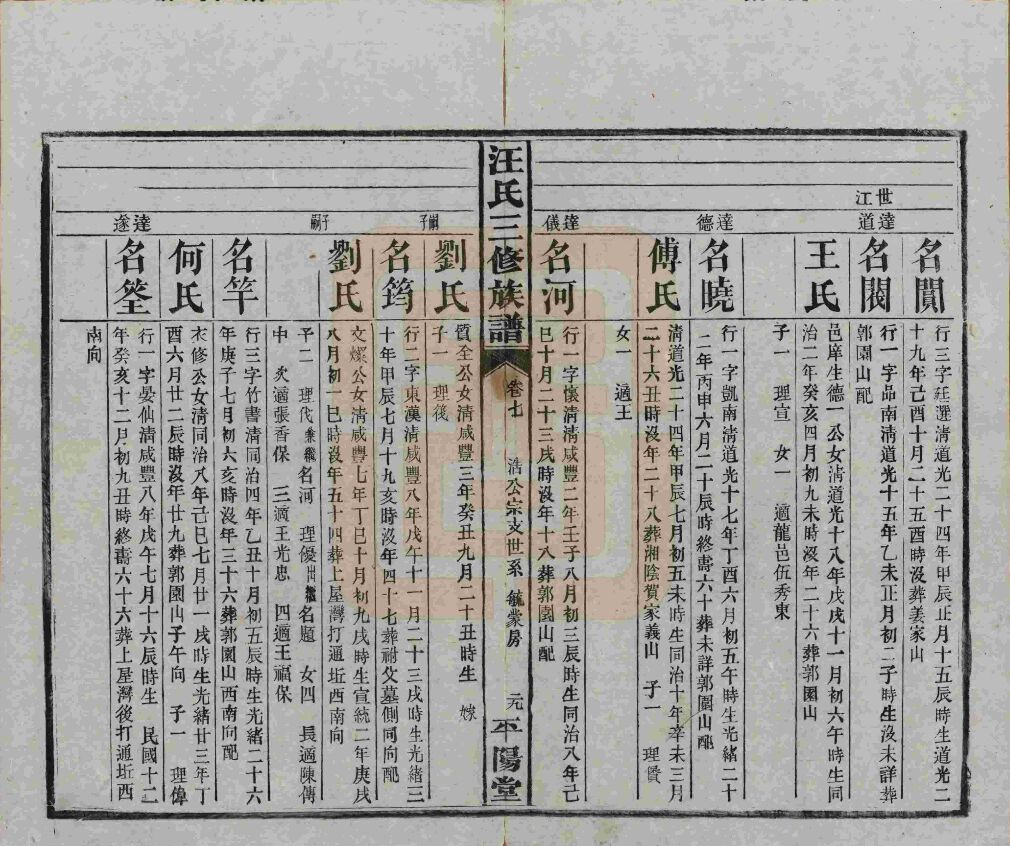 世江
達道
名閴
行三字莊選清道光二十四年甲辰正月十五辰時生道光二
十九年己酉十月二十五酉時沒葬姜家山
名閿
行一字品南清道光十五年乙未正月初二子時生沒未詳葬
郭園山配
王氏
邑庠生德一公女清道光十八年戊戌十一月初六午時生同
治二年癸亥四月初九未時沒年二十六葬郭園山
子一 理宣 女一 適龍邑伍秀東
達德
名曉
行一字凱南清道光十七年丁酉六月初五午時生光緒二十
二年丙申六月二十辰時終壽六十葬未詳郭園山配
傅氏
清道光二十四年甲辰七月初五未時生同治十年辛未三月
二十六丑時沒年二十八葬湘陰賀家義山 子一 理賢
女一 適王
達儀
名河
行一字懷清清咸豐二年壬子八月初三辰時生同治八年己
巳十月二十三戌時沒年十八葬郭園山配
汪氏三修族譜
卷七
浩公宗支世系 毓蒙房
元
平陽堂
嗣子
劉氏
質全公女清咸豐三年癸丑九月二十丑時生 嫁
子一 理
名筠
行二字東漢清咸豐八年戊午十一月二十三戌時生光緒三
十年甲辰七月十九亥時沒年四十七葬祔父墓側同向配
嗣子
劉氏
文燦公女清咸豐七年丁巳十月初九戌時生宣統二年庚戌
八月初一巳時沒年五十四葬上屋灣打通坵西南向
子二 理伐兼繼名河 理優出繼名題 女四 長適陳傳
中 次適張香保 三適王光忠 四適王福保
名竿
行三字竹書清同治四年乙丑十月初五辰時生光緒二十六
年庚子七月初六亥時沒年三十六葬郭園山西南向配
何氏
衣修公女清同治八年己巳七月廿一戌時生光緒廿三年丁
酉六月廿二辰時沒年廿九葬郭園山子午向 子一 理偉
達遂
名筌
行一字晏仙清咸豐八年戊午七月十六辰時生 民國十二
年癸亥十二月初九丑時終壽六十六葬上屋灣後打通坵西
南向